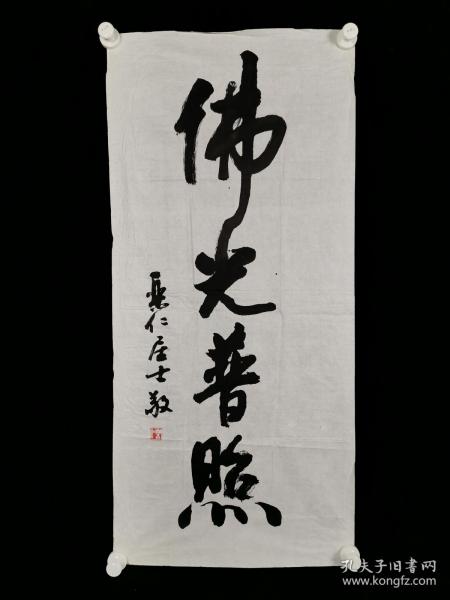 佛光普照
仁居士敬
孔夫子旧书网
www.kongfz.com